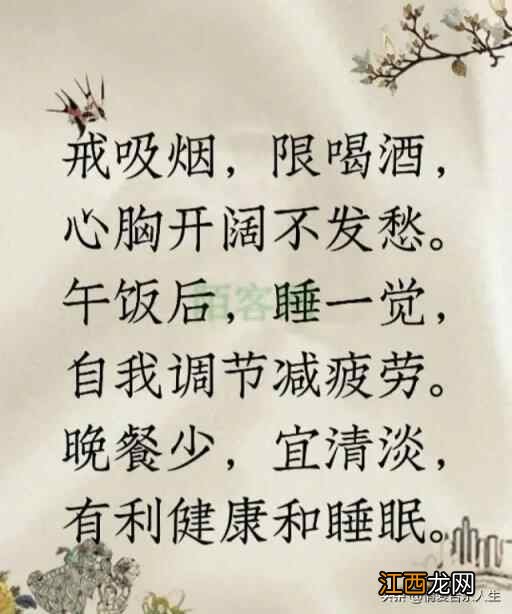 戒吸烟，限喝酒，
心胸开阔不发愁。
午饭后，睡一觉，
自我调节减疲劳。
晚餐少，宜清淡，
有利健康和睡眠。
陌客
江西龙网